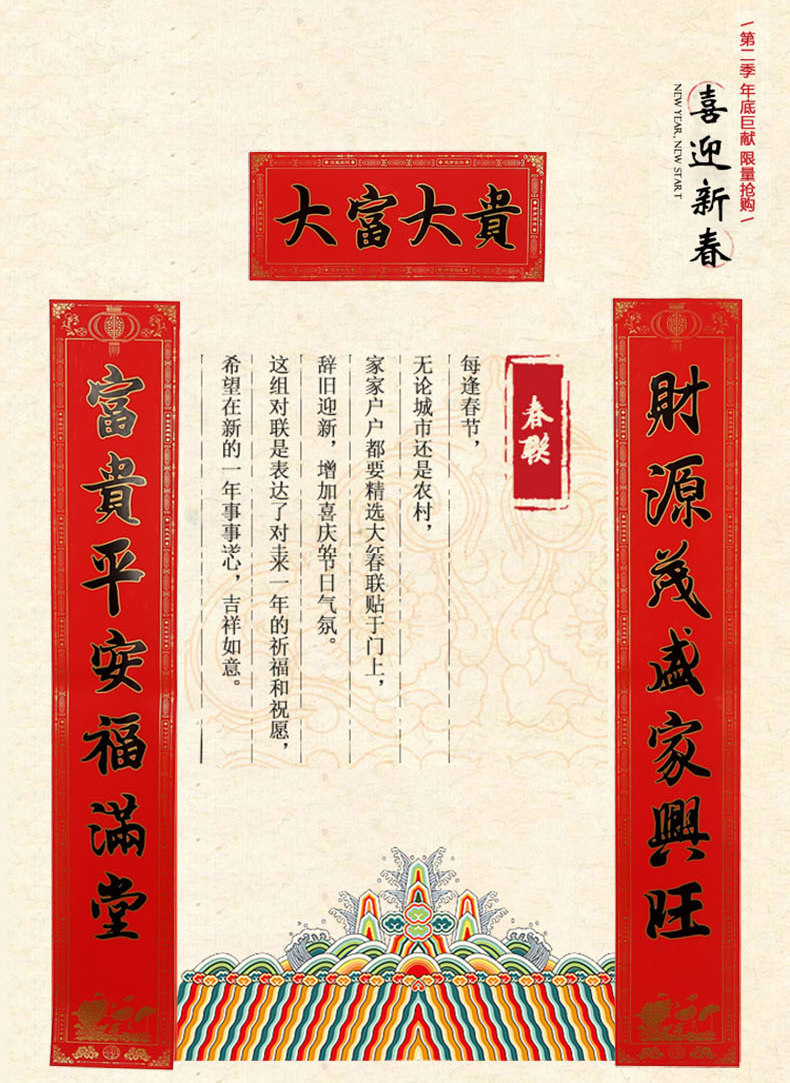 / 第二季 年底巨献 限量抢购 /
喜迎新春
NEW YEAR, NEW START
大富大貴
財源茂盛家興旺
春联
每逢春节，
无论城市还是农村，
家家户户都要精选大春联贴于门上，
辞旧迎新，增加喜庆的节日气氛。
这组对联是表达了对未来一年的祈福和祝愿，
希望在新的一年事事心，吉祥如意。
富貴平安福滿堂